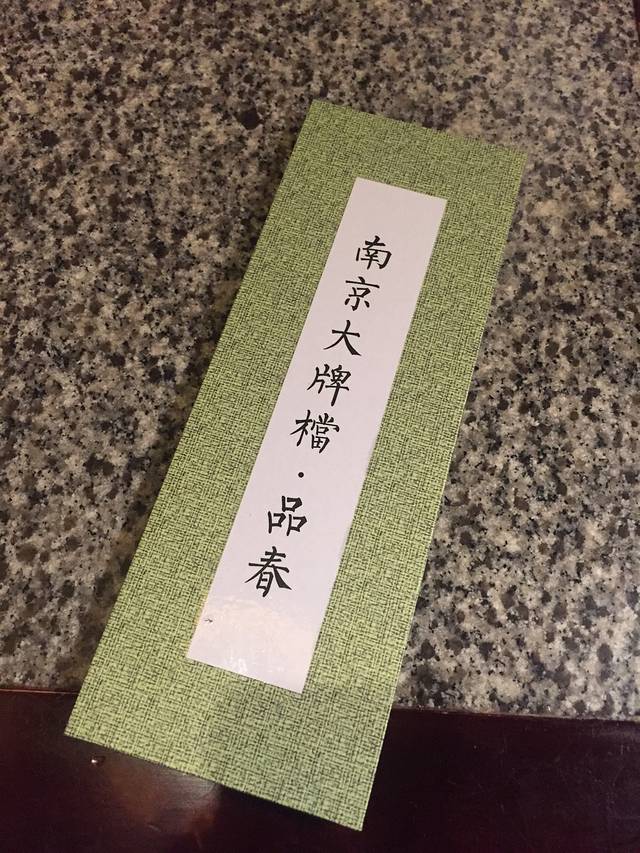 南京大牌檔·品春